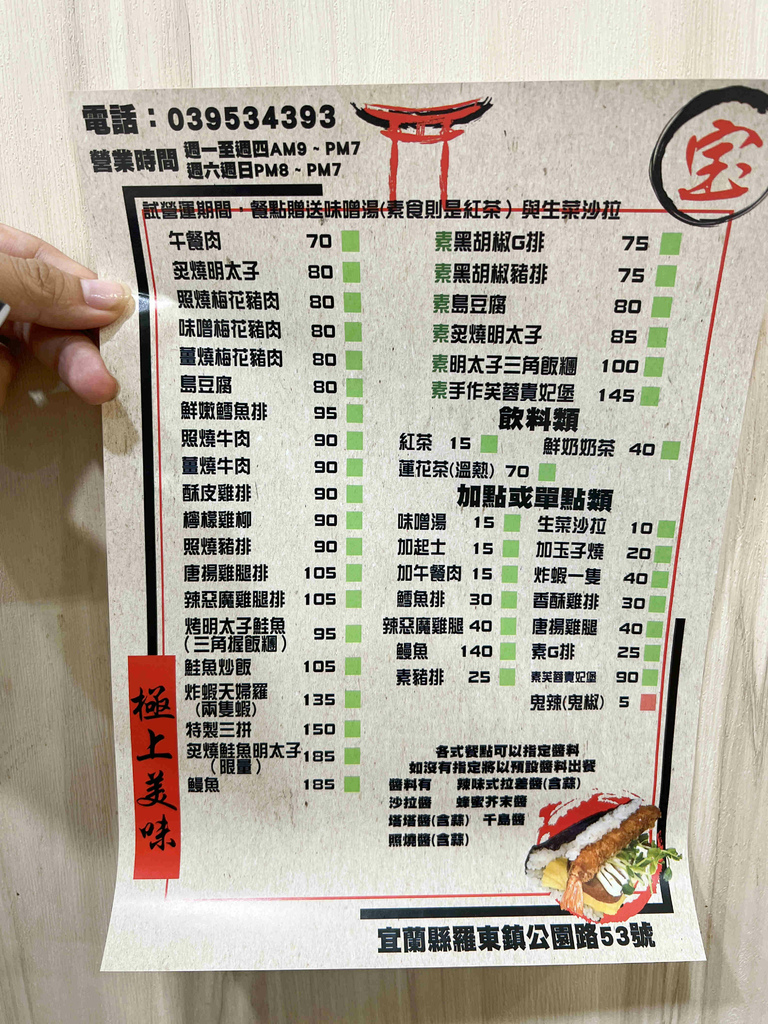 電話：039534393
營業時間 週一至週四AM9 ~ PM7
週六週日PM8 ~ PM7
宝
試營運期間，餐點贈送味噌湯(素食則是紅茶) 與生菜沙拉
午餐肉 70
炙燒明太子 80
照燒梅花豬肉 80
味噌梅花豬肉 80
薑燒梅花豬肉 80
島豆腐 80
鮮嫩鱈魚排 95
照燒牛肉 90
薑燒牛肉 90
酥皮雞排 90
檸檬雞柳 90
照燒豬排 90
唐揚雞腿排 105
辣惡魔雞腿排 105
烤明太子鮭魚
(三角握飯糰) 95
鮭魚炒飯 105
炸蝦天婦羅
(兩隻蝦) 135
特製三拼 150
炙燒鮭魚明太子
(限量) 185
鰻魚 185
素黑胡椒G排 75
素黑胡椒豬排 75
素島豆腐 80
素炙燒明太子 85
素明太子三角飯糰 100
素手作芙蓉貴妃堡 145
飲料類
紅茶 15 鮮奶奶茶 40
蓮花茶(溫熱) 70
加點或單點類
味噌湯 15 生菜沙拉 10
加起士 15 加玉子燒 20
加午餐肉 15 炸蝦一隻 40
鱈魚排 30 香酥雞排 30
辣惡魔雞腿 40 唐揚雞腿 40
鰻魚 140 素G排 25
素豬排 25 素芙蓉貴妃堡 90
鬼辣(鬼椒) 5
各式餐點可以指定醬料
如沒有指定將以預設醬料出餐
醬料有 辣味式拉差醬(含蒜)
沙拉醬 蜂蜜芥末醬
塔塔醬(含蒜) 千島醬
照燒醬(含蒜)
極上美味
宜蘭縣羅東鎮公園路53號